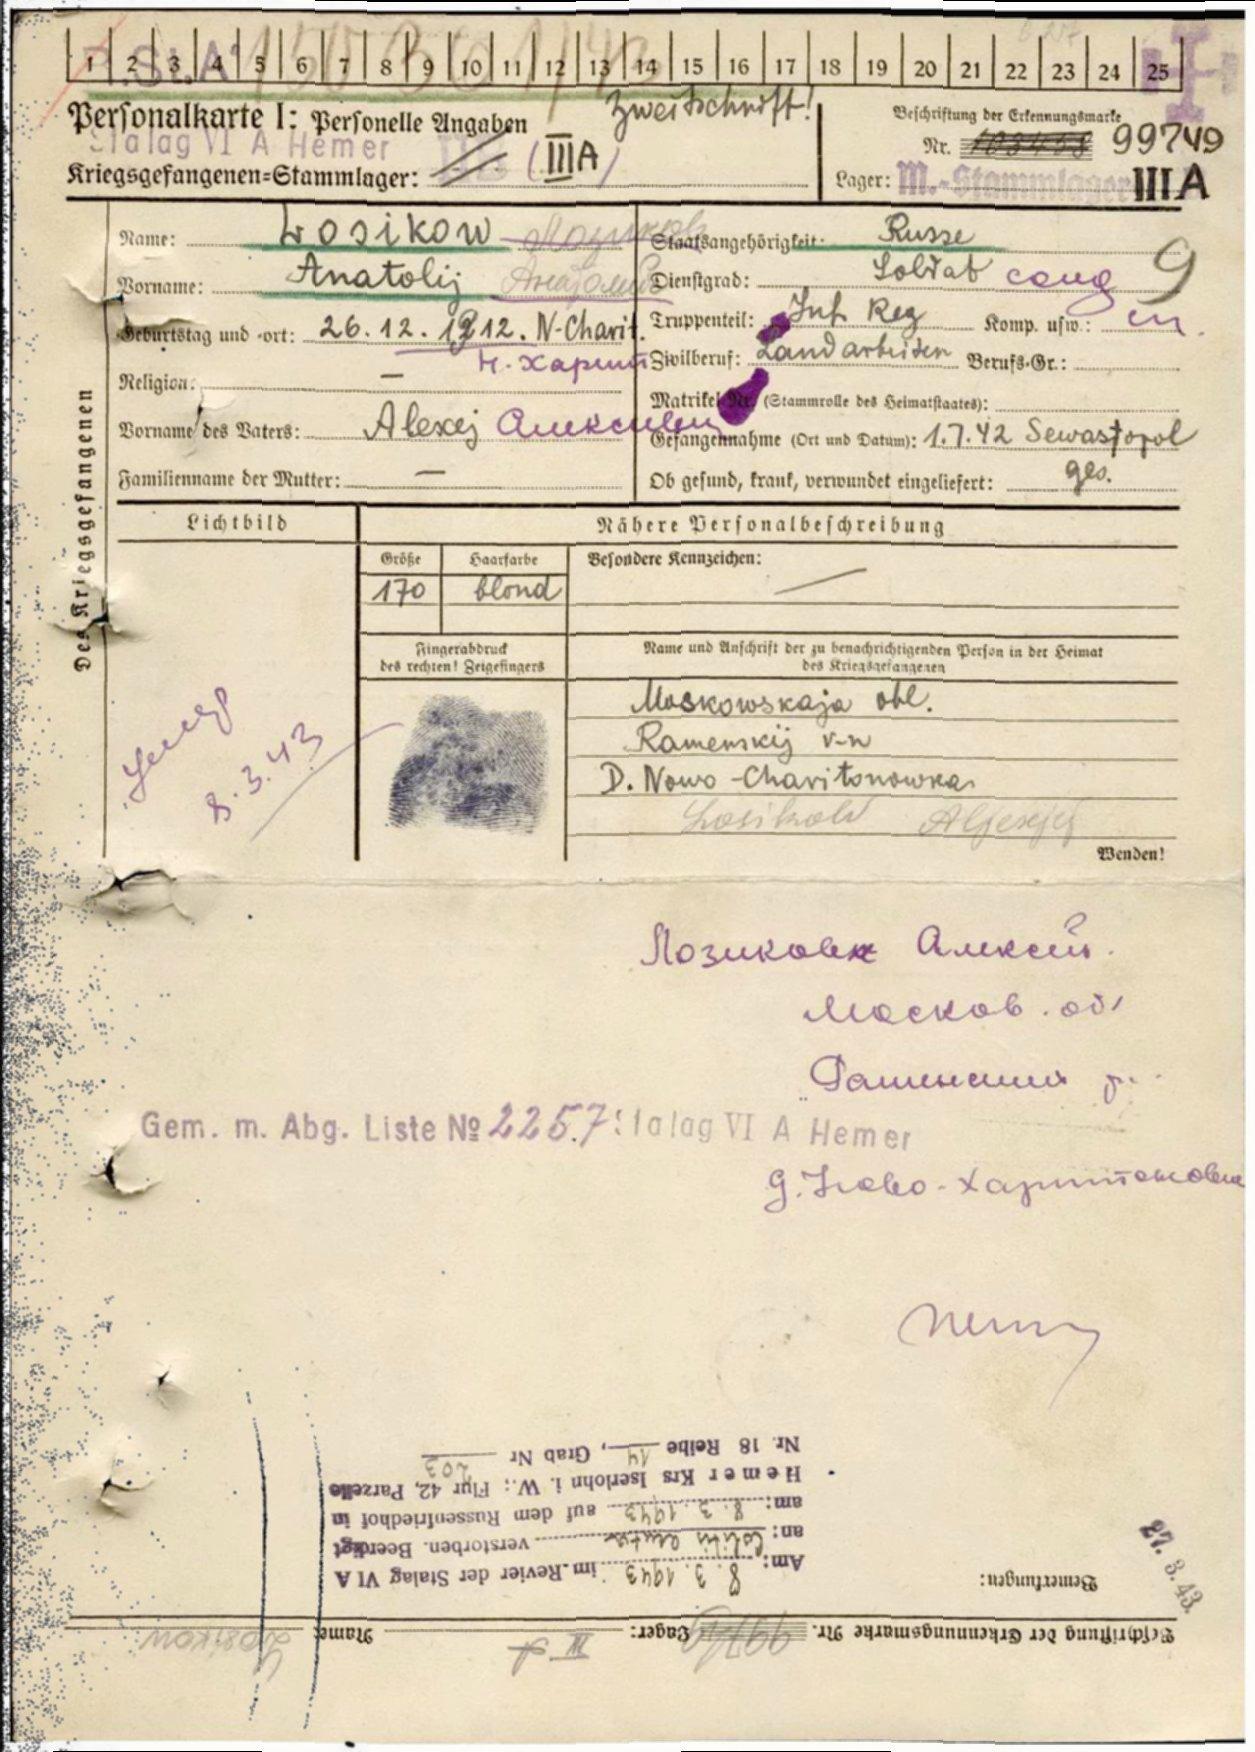 1 2 3 4 5 6 7 8 9 10 11 12 13 14 15 16 17 18 19 20 21 22 23 24 25
Zweitschrift!
Personalkarte I: Personelle Angaben
Stalag VI A Hemer
Kriegsgefangenen=Stammlager: (III A)
Beschriftung der Erkennungsmarke
Nr. 99749
Lager: M.-Stammlager III A
Des Kriegsgefangenen
Name: Losikow Лозиков
Vorname: Anatolij Анатолий
Geburtstag und -ort: 26.12.1912. N-Charit.
Н-Харит
Religion: —
Vorname des Vaters: Alexej Алексеевич
Familienname der Mutter: —
Staatsangehörigkeit: Russe
Dienstgrad: Soldat солд
9
Truppenteil: Inf. Reg Komp. usw.:
Zivilberuf: Landarbeiter Berufs-Gr.:
Matrikel Nr. (Stammrolle des Heimatstaates):
Gefangennahme (Ort und Datum): 1.7.42 Sewastopol
Ob gesund, krank, verwundet eingeliefert: ges.
Lichtbild
Nähere Personalbeschreibung
Größe Haarfarbe Besondere Kennzeichen:
170 blond —
Fingerabdruck
des rechten! Zeigefingers
Name und Anschrift der zu benachrichtigenden Person in der Heimat
des Kriegsgefangenen
Moskowskaja obl.
Ramenskij r-n
D. Nowo-Charitonowka
Losikow Aljexej
умер
8.3.43
Wenden!
Алексей.
Москов. об
Раменский р.
Gem. m. Abg. Liste № 2257 Stalag VI A Hemer
д. Ново-Харитоновка
27. 3. 43.
Beschriftung der Erkennungsmarke Nr. 99749 Lager: III A Name: Losikow
Bemerkungen:
Am: 8. 3. 1943 im Revier der Stalag VI A
an: verstorben. Beerdigt
am: 8. 3. 1943 auf dem Russenfriedhof in
Hemer Krs Iserlohn i. W.: Flur 42, Parzelle
Nr. 18 Reihe 14, Grab Nr 203